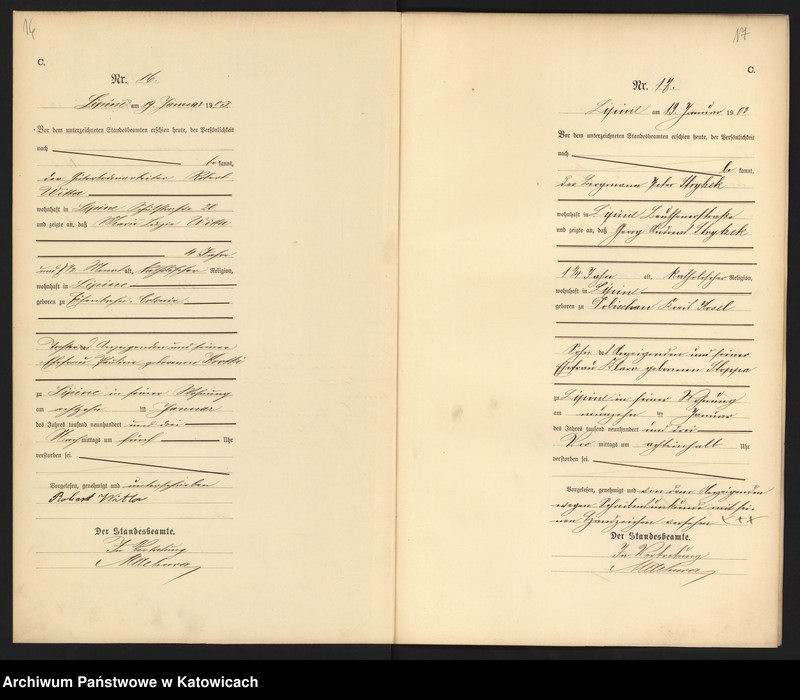 16
C.
Nr. 16.
Lipine am 19. Januar 1903.
Vor dem unterzeichneten Standesbeamten erschien heute, der Persönlichkeit
nach
be kannt,
der Robert
wohnhaft in Lipine Schulstraße 20
und zeigte an, daß Marie
4 Jahre
und 7½ Monat alt, katholischer Religion,
wohnhaft in Lipine
geboren zu Colonie
Tochter des Anzeigenden und seiner
Ehefrau Pauline geborene
zu Lipine in seiner Wohnung
am achtzehn ten Januar
des Jahres tausend neunhundert und drei
Nach mittags um fünf Uhr
verstorben sei.
Vorgelesen, genehmigt und unterschrieben
Robert
Der Standesbeamte.
In Vertretung
17
C.
Nr. 17.
Lipine am 19. Januar 1903
Vor dem unterzeichneten Standesbeamten erschien heute, der Persönlichkeit
nach
be kannt,
der Bergmann Peter Skrybek
wohnhaft in Lipine Beuthenerstraße
und zeigte an, daß Georg Skrybek
1¼ Jahr alt, katholischer Religion,
wohnhaft in Lipine
geboren zu Kreis Kosel
Sohn des Anzeigenden und seiner
Ehefrau Klara geborenen Stoppa
zu Lipine in seiner Wohnung
am neunzehn ten Januar
des Jahres tausend neunhundert und drei
Vor mittags um achteinhalb Uhr
verstorben sei.
Vorgelesen, genehmigt und von dem Anzeigenden
wegen Schreibensunkunde mit sei-
nen Handzeichen versehen XXX
Der Standesbeamte.
In Vertretung
Archiwum Państwowe w Katowicach